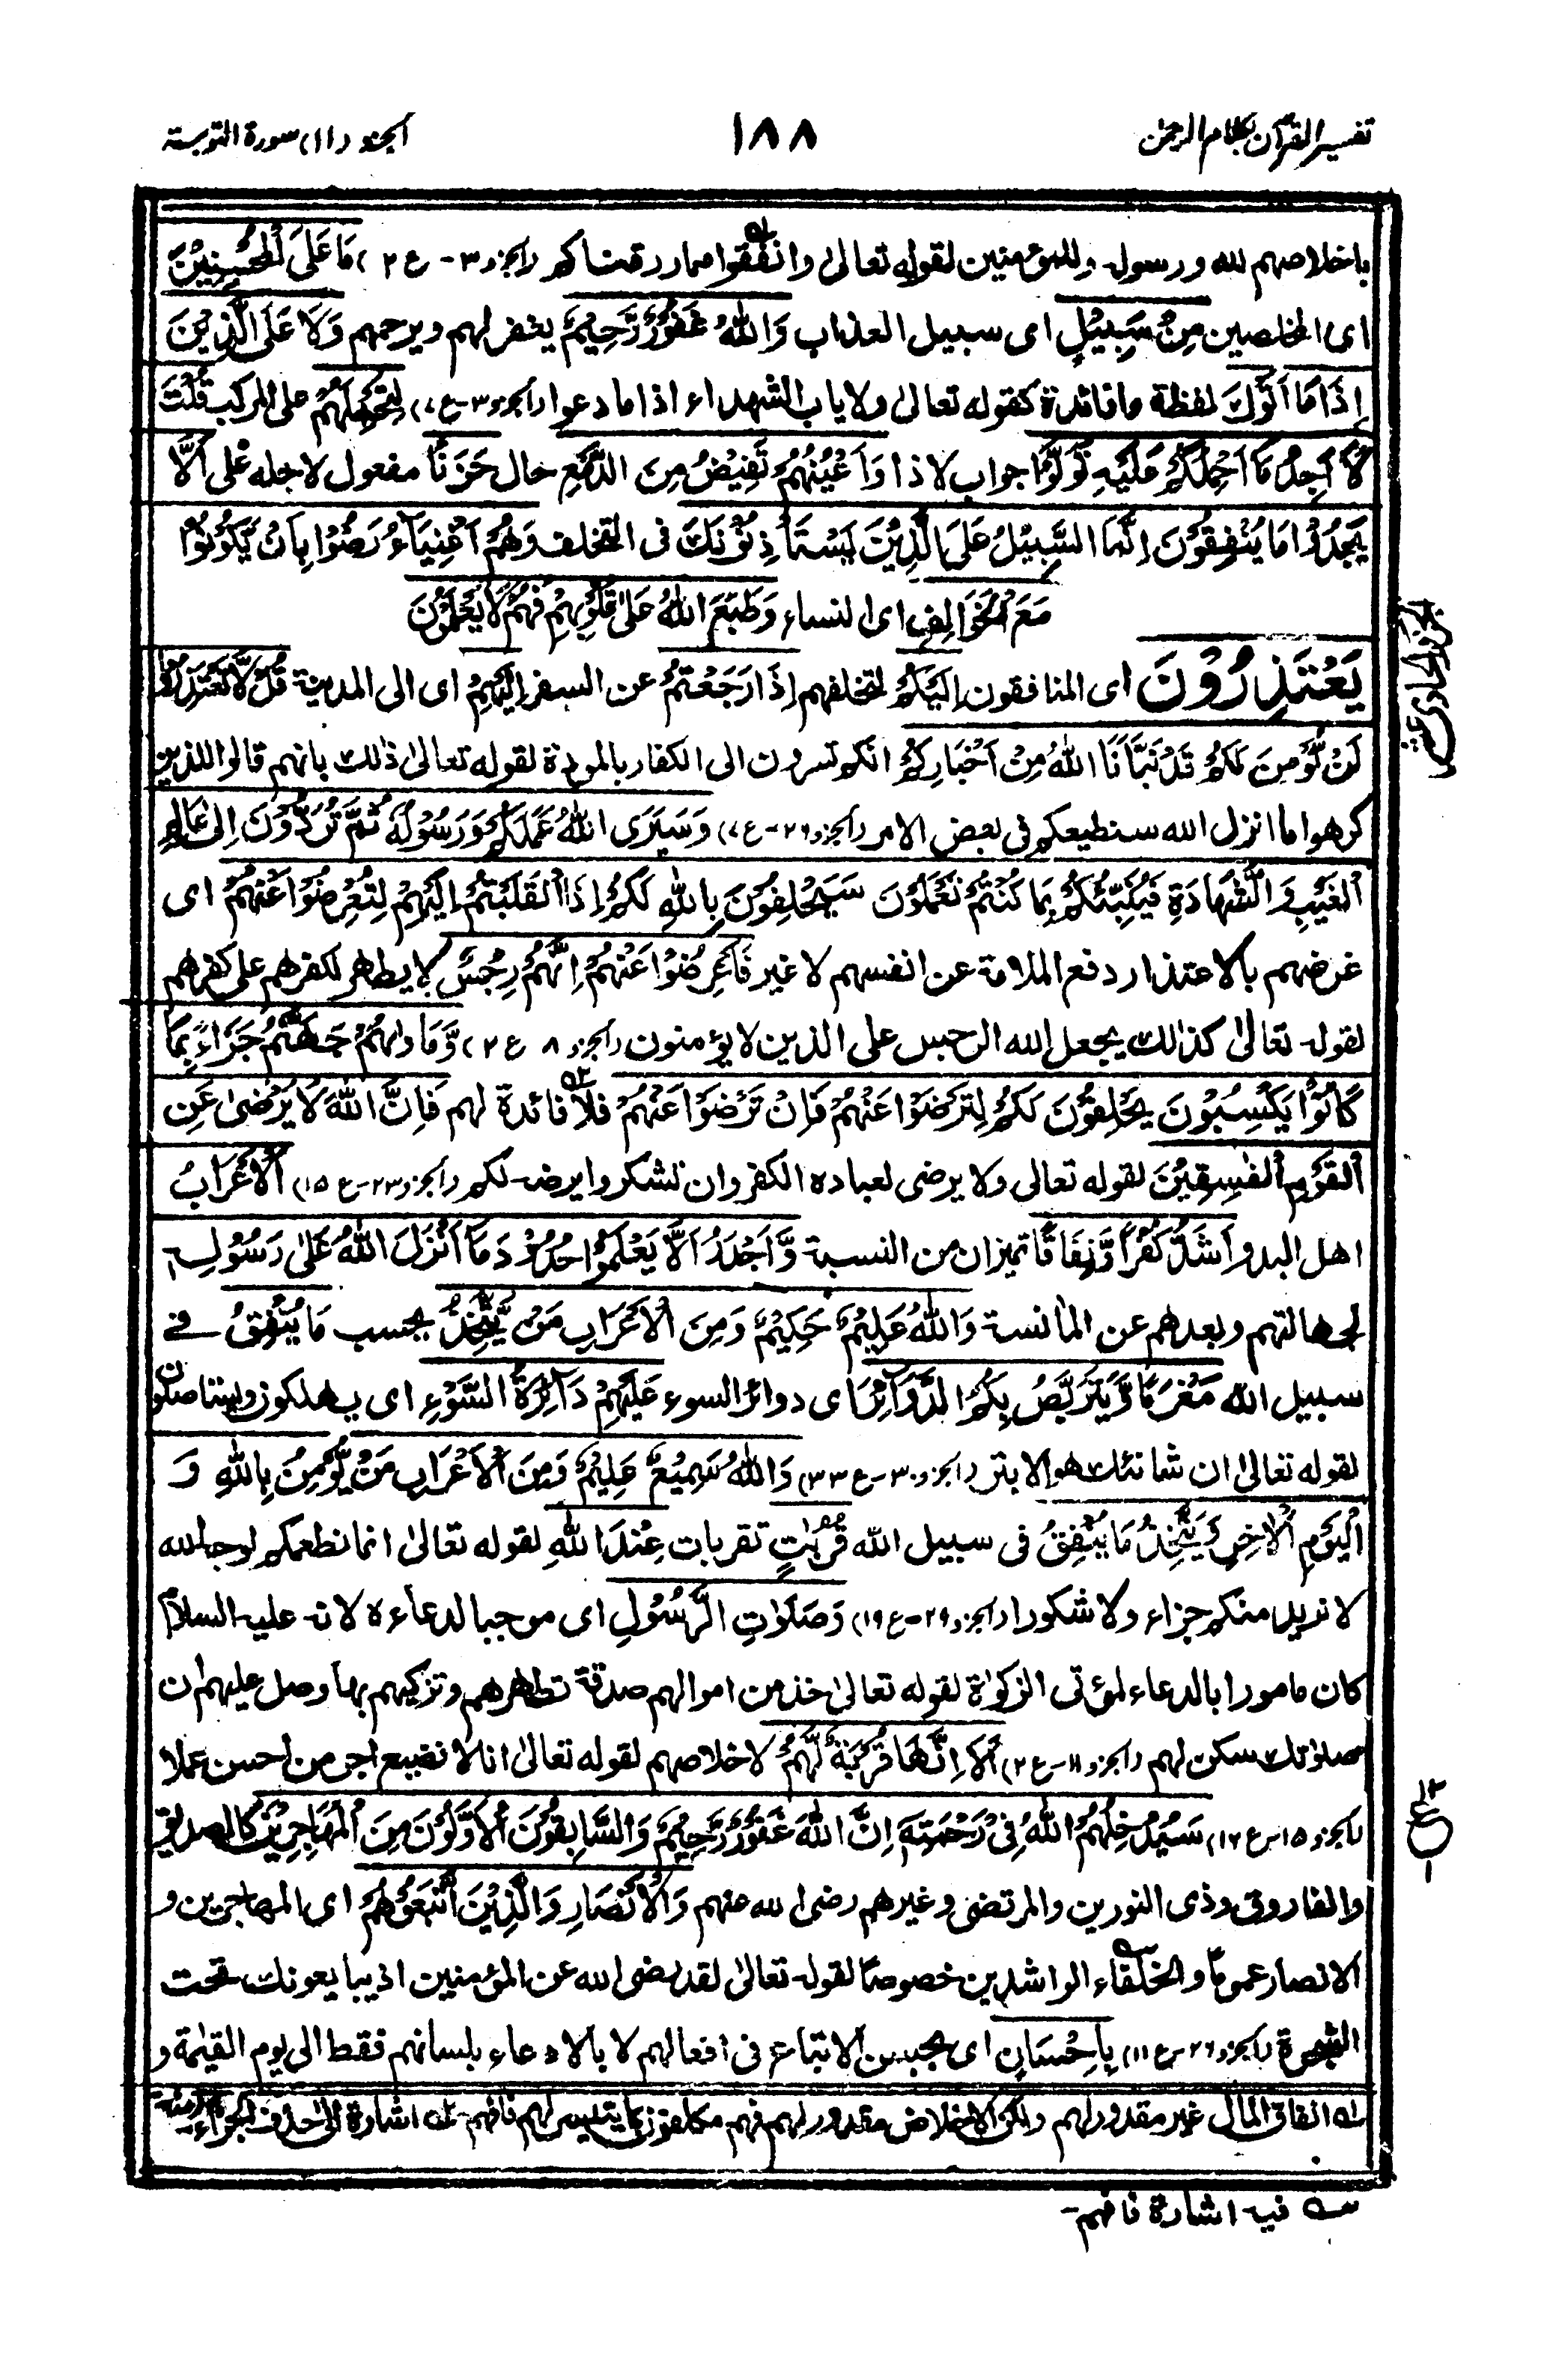 تفسير القرآن بكلام الرحمن
١٨٨
الجزء (١١) سورة التوبة
باخلاصهم لله ورسوله وللمؤمنين لقوله تعالىٰ وانفقوا مما رزقناكم (الجزء ٣- ع ٢) مَا عَلَى الْمُحْسِنِيْنَ
اى المخلصين مِنْ سَبِيْلٍ اى سبيل العذاب وَاللهُ غَفُوْرٌ رَّحِيْمٌ يغفر لهم ويرحمهم وَلَا عَلَى الَّذِيْنَ
اِذَا مَا اَتَوْكَ لفظة ما فائدة كقوله تعالىٰ ولا ياب الشهداء اذا ما دعوا (الجزء ٣- ع ٧) لِتَحْمِلَهُمْ على المركب قُلْتَ
لَا اَجِدُ مَا اَحْمِلُكُمْ عَلَيْهِ تَوَلَّوْا جواب لاذا وَاَعْيُنُهُمْ تَفِيْضُ مِنَ الدَّمْعِ حال حَزَنًا مفعول لاجله على اَلَّا
يَجِدُوْا مَا يُنْفِقُوْنَ اِنَّمَا السَّبِيْلُ عَلَى الَّذِيْنَ يَسْتَأْذِنُوْنَكَ فى التخلف وَهُمْ اَغْنِيَآءُ رَضُوْا بِاَنْ يَّكُوْنُوْا
مَعَ الْخَوَالِفِ اى النساء وَطَبَعَ اللهُ عَلٰى قُلُوْبِهِمْ فَهُمْ لَا يَعْلَمُوْنَ
يَعْتَذِرُوْنَ اى المنافقون اِلَيْكُمْ لتخلفهم اِذَا رَجَعْتُمْ عن السفر اِلَيْهِمْ اى الى المدينة قُلْ لَّا تَعْتَذِرُوْا
لَنْ نُّؤْمِنَ لَكُمْ قَدْ نَبَّاَنَا اللهُ مِنْ اَخْبَارِكُمْ انكم تسرون الى الكفار بالمودة لقوله تعالىٰ ذٰلك بانهم قالوا للذين
كرهوا ما انزل الله سنطيعكم فى بعض الامر (الجزء ٢٦- ع ٧) وَسَيَرَى اللهُ عَمَلَكُمْ وَرَسُوْلُهٗ ثُمَّ تُرَدُّوْنَ اِلٰى عَالِمِ
الْغَيْبِ وَالشَّهَادَةِ فَيُنَبِّئُكُمْ بِمَا كُنْتُمْ تَعْمَلُوْنَ سَيَحْلِفُوْنَ بِاللهِ لَكُمْ اِذَا انْقَلَبْتُمْ اِلَيْهِمْ لِتُعْرِضُوْا عَنْهُمْ اى
غرضهم بالاعتذار دفع الملامة عن انفسهم لا غير فَاَعْرِضُوْا عَنْهُمْ اِنَّهُمْ رِجْسٌ لا يطاهر لكفرهم على كفرهم
لقوله تعالىٰ كذالك يجعل الله الرجس على الذين لا يؤمنون (الجزء ٨ ع ٢) وَّمَاْوٰىهُمْ جَهَنَّمُ جَزَآءً بِمَا
كَانُوْا يَكْسِبُوْنَ يَحْلِفُوْنَ لَكُمْ لِتَرْضَوْا عَنْهُمْ فَاِنْ تَرْضَوْا عَنْهُمْ فلا فائدة لهم فَاِنَّ اللهَ لَا يَرْضٰى عَنِ
الْقَوْمِ الْفٰسِقِيْنَ لقوله تعالى ولا يرضى لعباده الكفر وان تشكروا يرضه لكم (الجزء ٢٣- ع ١٥) اَلْاَعْرَابُ
اهل البدو اَشَدُّ كُفْرًا وَّنِفَاقًا تميزان من النسبة وَّاَجْدَرُ اَلَّا يَعْلَمُوْا حُدُوْدَ مَا اَنْزَلَ اللهُ عَلٰى رَسُوْلِهٖ
لجهالتهم وبعدهم عن المأنسة وَاللهُ عَلِيْمٌ حَكِيْمٌ وَمِنَ الْاَعْرَابِ مَنْ يَّتَّخِذُ يحسب مَا يُنْفِقُ فى
سبيل الله مَغْرَمًا وَّيَتَرَبَّصُ بِكُمُ الدَّوَآئِرَ اى دوائر السوء عَلَيْهِمْ دَآئِرَةُ السَّوْءِ اى يهلكون ويستاصلون
لقوله تعالىٰ ان شانئك هو الابتر (الجزء ٣٠- ع ٣٣) وَاللهُ سَمِيْعٌ عَلِيْمٌ وَمِنَ الْاَعْرَابِ مَنْ يُّؤْمِنُ بِاللهِ وَ
الْيَوْمِ الْاٰخِرِ وَيَتَّخِذُ مَا يُنْفِقُ فى سبيل الله قُرُبٰتٍ تقربات عِنْدَ اللهِ لقوله تعالىٰ انما نطعمكم لوجه الله
لا نريد منكم جزاء ولا شكورا (الجزء ٢٩- ع ١٩) وَصَلَوٰتِ الرَّسُوْلِ اى موجبا لدعاءه لانه عليه السلام
كان مامورا بالدعاء لمؤتى الزكوٰة لقوله تعالىٰ خذ من اموالهم صدقة تطهرهم وتزكيهم بها وصل عليهم ان
صلوٰتك سكن لهم (الجزء ١١- ع ٢) اَلَا اِنَّهَا قُرْبَةٌ لَّهُمْ لاخلاصهم لقوله تعالىٰ انا لا نضيع اجر من احسن عملا
(الجزء ١٥- ع ١٦) سَيُدْخِلُهُمُ اللهُ فِيْ رَحْمَتِهٖ اِنَّ اللهَ غَفُوْرٌ رَّحِيْمٌ وَالسَّابِقُوْنَ الْاَوَّلُوْنَ مِنَ الْمُهَاجِرِيْنَ كالصديق
والفاروق وذى النورين والمرتضى وغيرهم رضى الله عنهم وَالْاَنْصَارِ وَالَّذِيْنَ اتَّبَعُوْهُمْ اى المهاجرين و
الانصار عموما والخلفاء الراشدين خصوصا لقوله تعالىٰ لقد رضى الله عن المؤمنين اذ يبايعونك تحت
الشجرة (الجزء ٢٦- ع ١١) بِاِحْسَانٍ اى بحسن الاتباع فى افعالهم لا بالادعاء بلسانهم فقط الى يوم القيٰمة و
له انفاق المال غير مقدور لهم ولكن الاخلاص مقدور لهم فهم مكلفون بما يتيسر لهم فافهم- ٢ه اشارة الى حذف الجزاء- منه
سه فيه اشارة فافهم-
الجزء الحادى عشر
ع